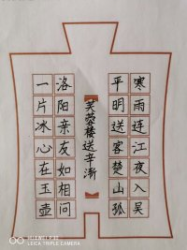 寒雨连江夜入吴
平明送客楚山孤
芙蓉楼送辛渐
洛阳亲友如相问
一片冰心在玉壶